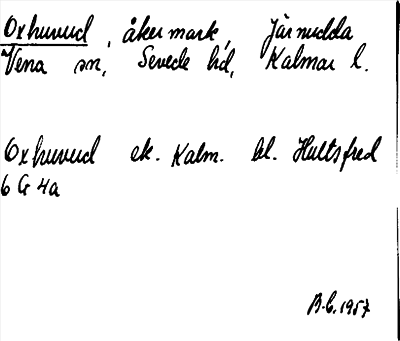 Oxhuvud, åkermark, Järnudda
Vena sn, Sevede hd, Kalmar l.
Oxhuvud ek. Kalm. bl. Hultsfred
6 G 4a
B.C. 1957